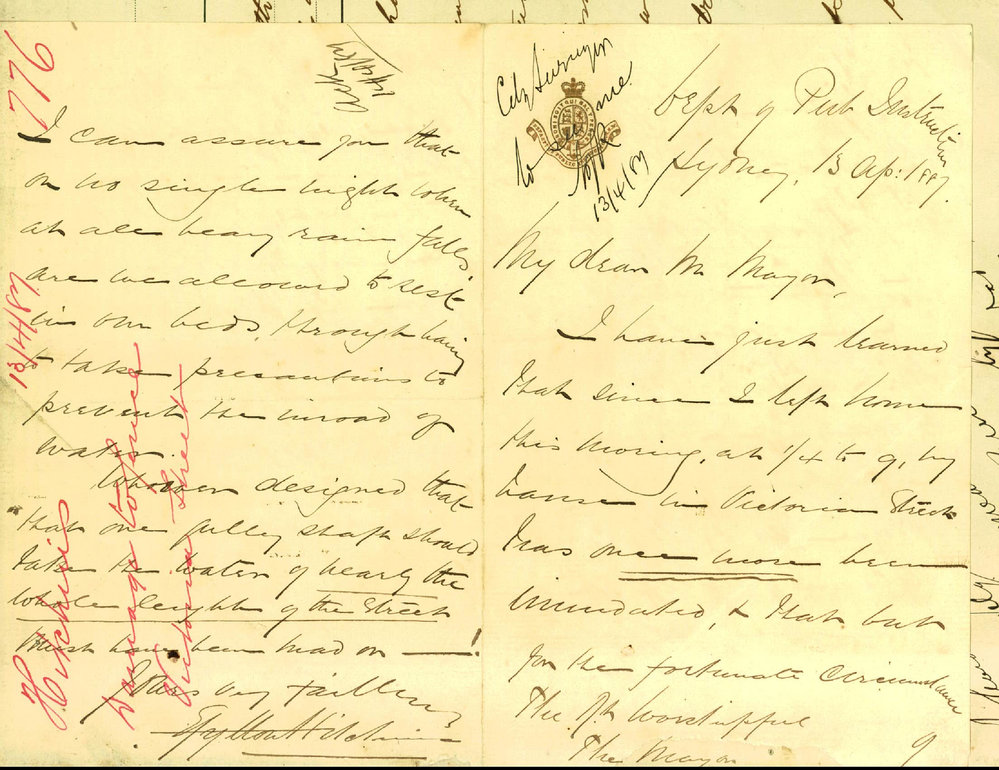 Dept of Pub Instruction
Sydney, 13 Ap: 1887.
City Surveyor
to see me
13/4/87
My dear Mr Mayor,
I have just learned
that since I left home
this morning, at 1/4 to 9, my
house in Victoria Street
has once more been
inundated, & that but
for the fortunate circumstance
The Rt Worshipful
The Mayor
9
776
14/4/87
I can assure you that
on no single night when
at all heavy rain falls
are we allowed to rest
in our beds, through having
to take precautions to
prevent the inroad of
water.
Whoever designed that
that one gulley shaft should
take the water of nearly the
whole length of the Street
must have been mad or ——!
Yours very faithfully
Hitchins
13/4/87
Hitchins
Damage to fence
Victoria Street